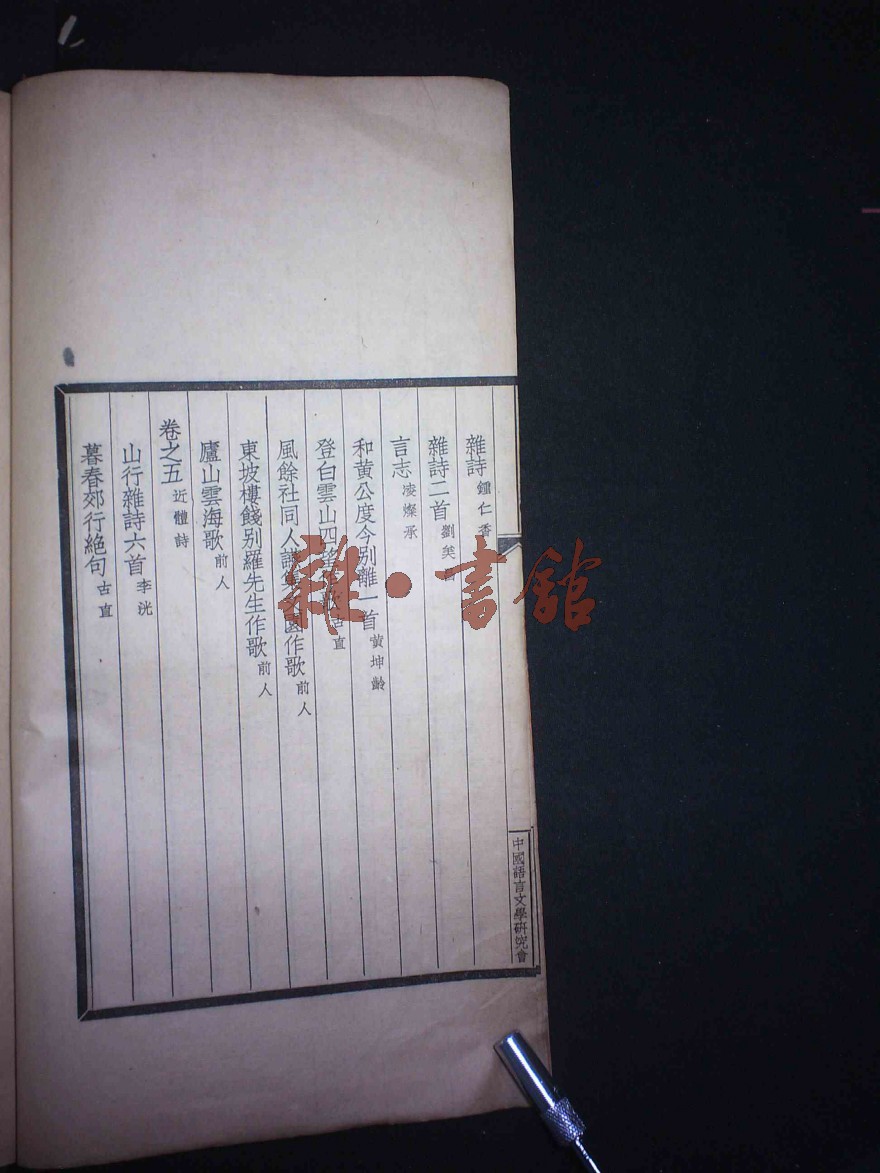 雜詩 鍾仁香
雜詩二首 劉
言志 凌燦承
和黃公度今別離一首 黃坤齡
登白雲山四 古直
風餘社同人 園作歌 前人
東坡樓餞別羅先生作歌 前人
廬山雲海歌 前人
卷之五 近體詩
山行雜詩六首 李洸
暮春郊行絕句 古直
中國語言文學研究會
雜·書館